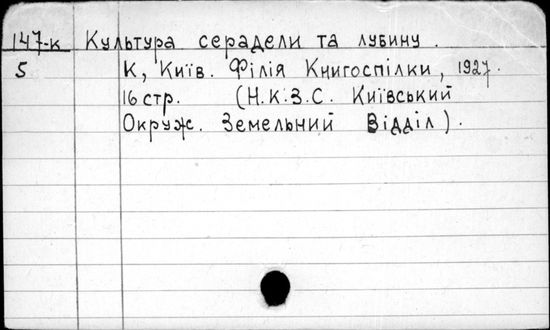 147-к Культура серадели та лубину.
5 К, Київ. Філія Книгоспілки, 1927.
16 стр. (Н.К.З.С. Київський
Окруж. Земельний Відділ).